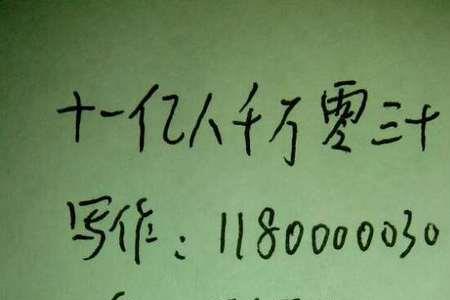 十一亿八千万零三十
写作：1180000030